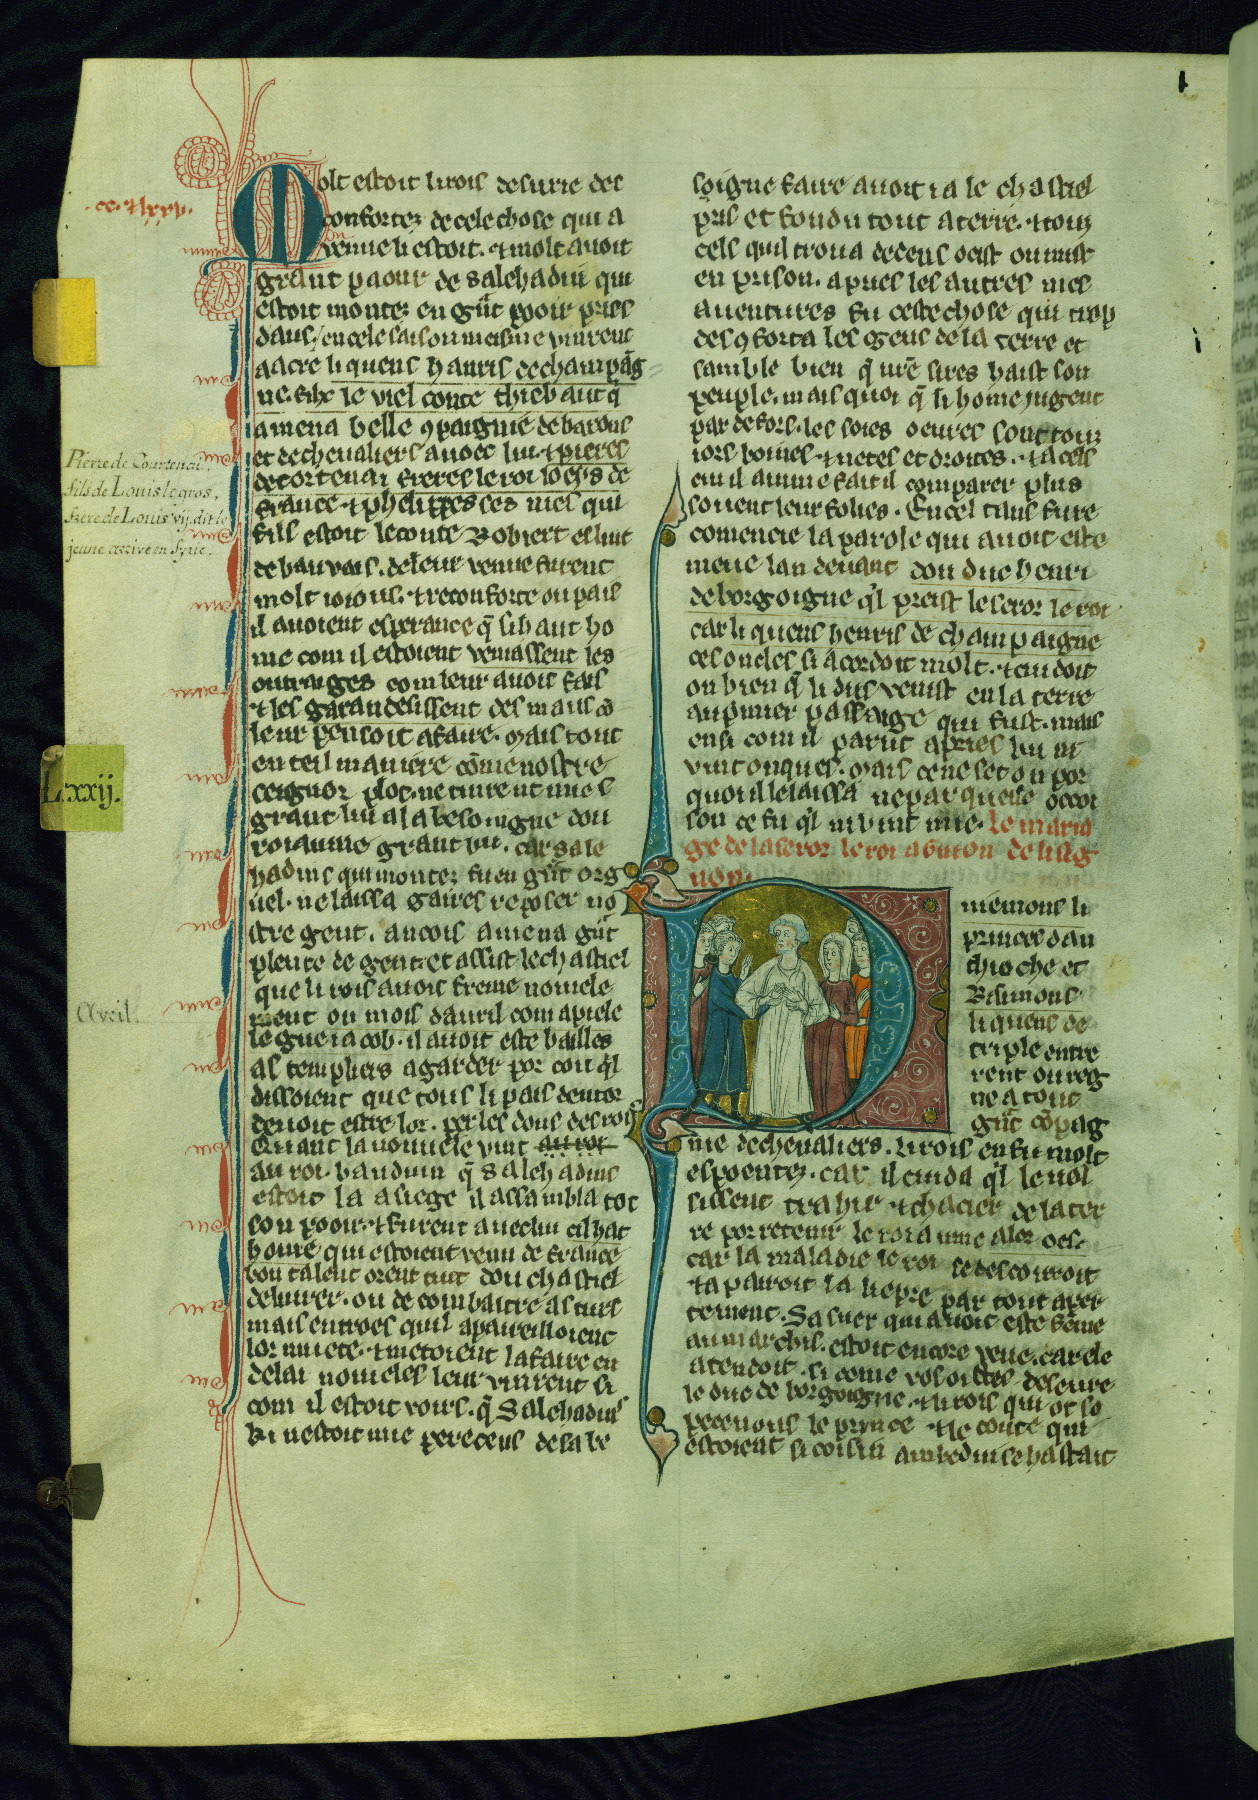 .cc.lxxv.
Molt estoit li rois de surie des
confortez de cele chose qui a
venue li estoit. et molt avoit
grant paour de salehadin qui
estoit montez en grãt pooir pries
dans / en cele saison meisme vinrent
a acre li quens hanris de champãg
ne. filx le viel conte thiebaut q̃
amena belle 9paignie de barons
et de chevaliers avoec lui. et pieres
de cortenai freres le roi loeys de
france. et phelippes ses nies qui
fils estoit le conte Robiert esliut
de bauvais. de leur venue furent
molt ioious. et reconforte ou pais
il avoient esperance q̃ si haut ho
me com il estoient veniassent les
outraiges com leur avoit fais
et les garandesissent des maus cõ
leur pensoit a faire. Mais tout
en teil maniere cõme nostre
ceignor plot. ne tinrent mies
grant liu a la besoingne dou
roiaume grant liu. car sale
hadins qui montez fu en grãt org
uel. ne laissa gaires reposer no
stre gent. ancois amena grãt
plente de gent et assist le chastiel
que li rois avoit freme noviele
ment ou mois davril com apiele
le gue iacob. il avoit este bailles
as templiers a garder por cou q̃l
disoient que tous li pais dentor
devoit estre lor. per les dons des rois
Quant la nouviele vint au roi
au roi bauduin q̃ Salehadins
estoit la a siege il assambla tot
son pooir. et furent avec lui cil hat
home qui estoient venu de france
bon talent orent tuit dou chastiel
delivrer. ou de combattre as turs
mais entroes quil apareilloient
lor muete. et metoient lafaire en
delai novieles leur vinrent si
com il estoit voirs. q̃ Salehadins
ki nestoit mie pereceus de sa be
Pierre de Courtenai,
fils de Louis le gros,
frere de Louis vij. dit le
jeune arrive en Syrie.
Lxxij.
Avril.
soigne faire avoit ia le chastiel
pris et fondu tout a terre. et touz
cels quil trova dedens ocist ou mist
en prison. apries les autres mes
aventures fu ceste chose qui trop
des9forta les gens de la terre et
samble bien q̃ nr̃e sires haist son
peuple. mais quoi q̃ li home jugent
par defors. les soies oevres sont touz
iors boines. et netes et droites. et a cels
cui il aimme fait il comparer plus
sovient leur folies. En cel tans fu re
comencie la parole qui avoit este
meue lan devant dou duc henri
de borgoigne q̃l preist le seror le roi
car li quens henris de champaigne
ces oncles si acordoit molt. et cuidoit
on bien q̃ li dus venist en la terre
au primier passaige qui fust. mais
ensi com il parut apries lui ni
vint onques. Mais ce ne set on por
quoi il le laissa ne par queile occoi
son ce fu q̃l ni vint mie. Le maria
ge de la seror le roi a buion de lisig
non.
Buiemons li
princes dan
thioche et
Raimons
li quens de
triple entre
rent ou reg
ne a tout
grãt cõpag
nie de chevaliers. li rois en fu molt
espoentez. car il cuida q̃l le vol
sissent trahir et chacier de la ter
re por retenir le roiaume a lor oes.
car la maladie le roi se descouvroit
et aparoit la liepre par tout aper
tement. Sa suer qui avoit este feme
au marchis. estoit encore veve. car ele
atendoit. si come vos oistes deseure
le duc de borgoigne. et li rois qui ot so
pecenous le prince et le conte qui
estoient si coisin ambedui se hastait